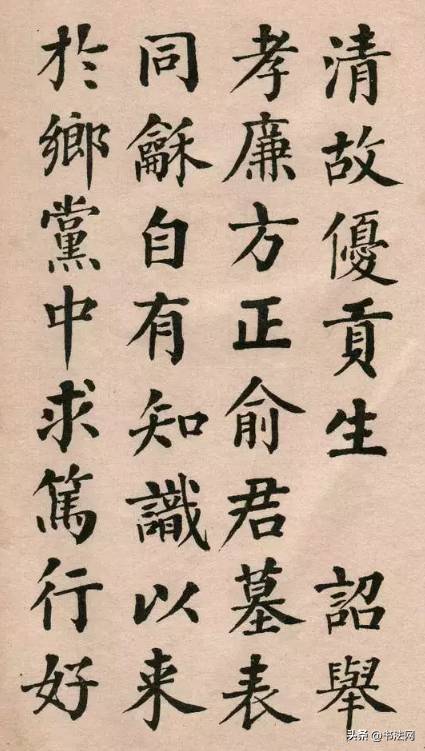 清故優貢生 詔舉
孝廉方正俞君墓表
同龢自有知識以来
於鄉黨中求篤行好
头条@书法网